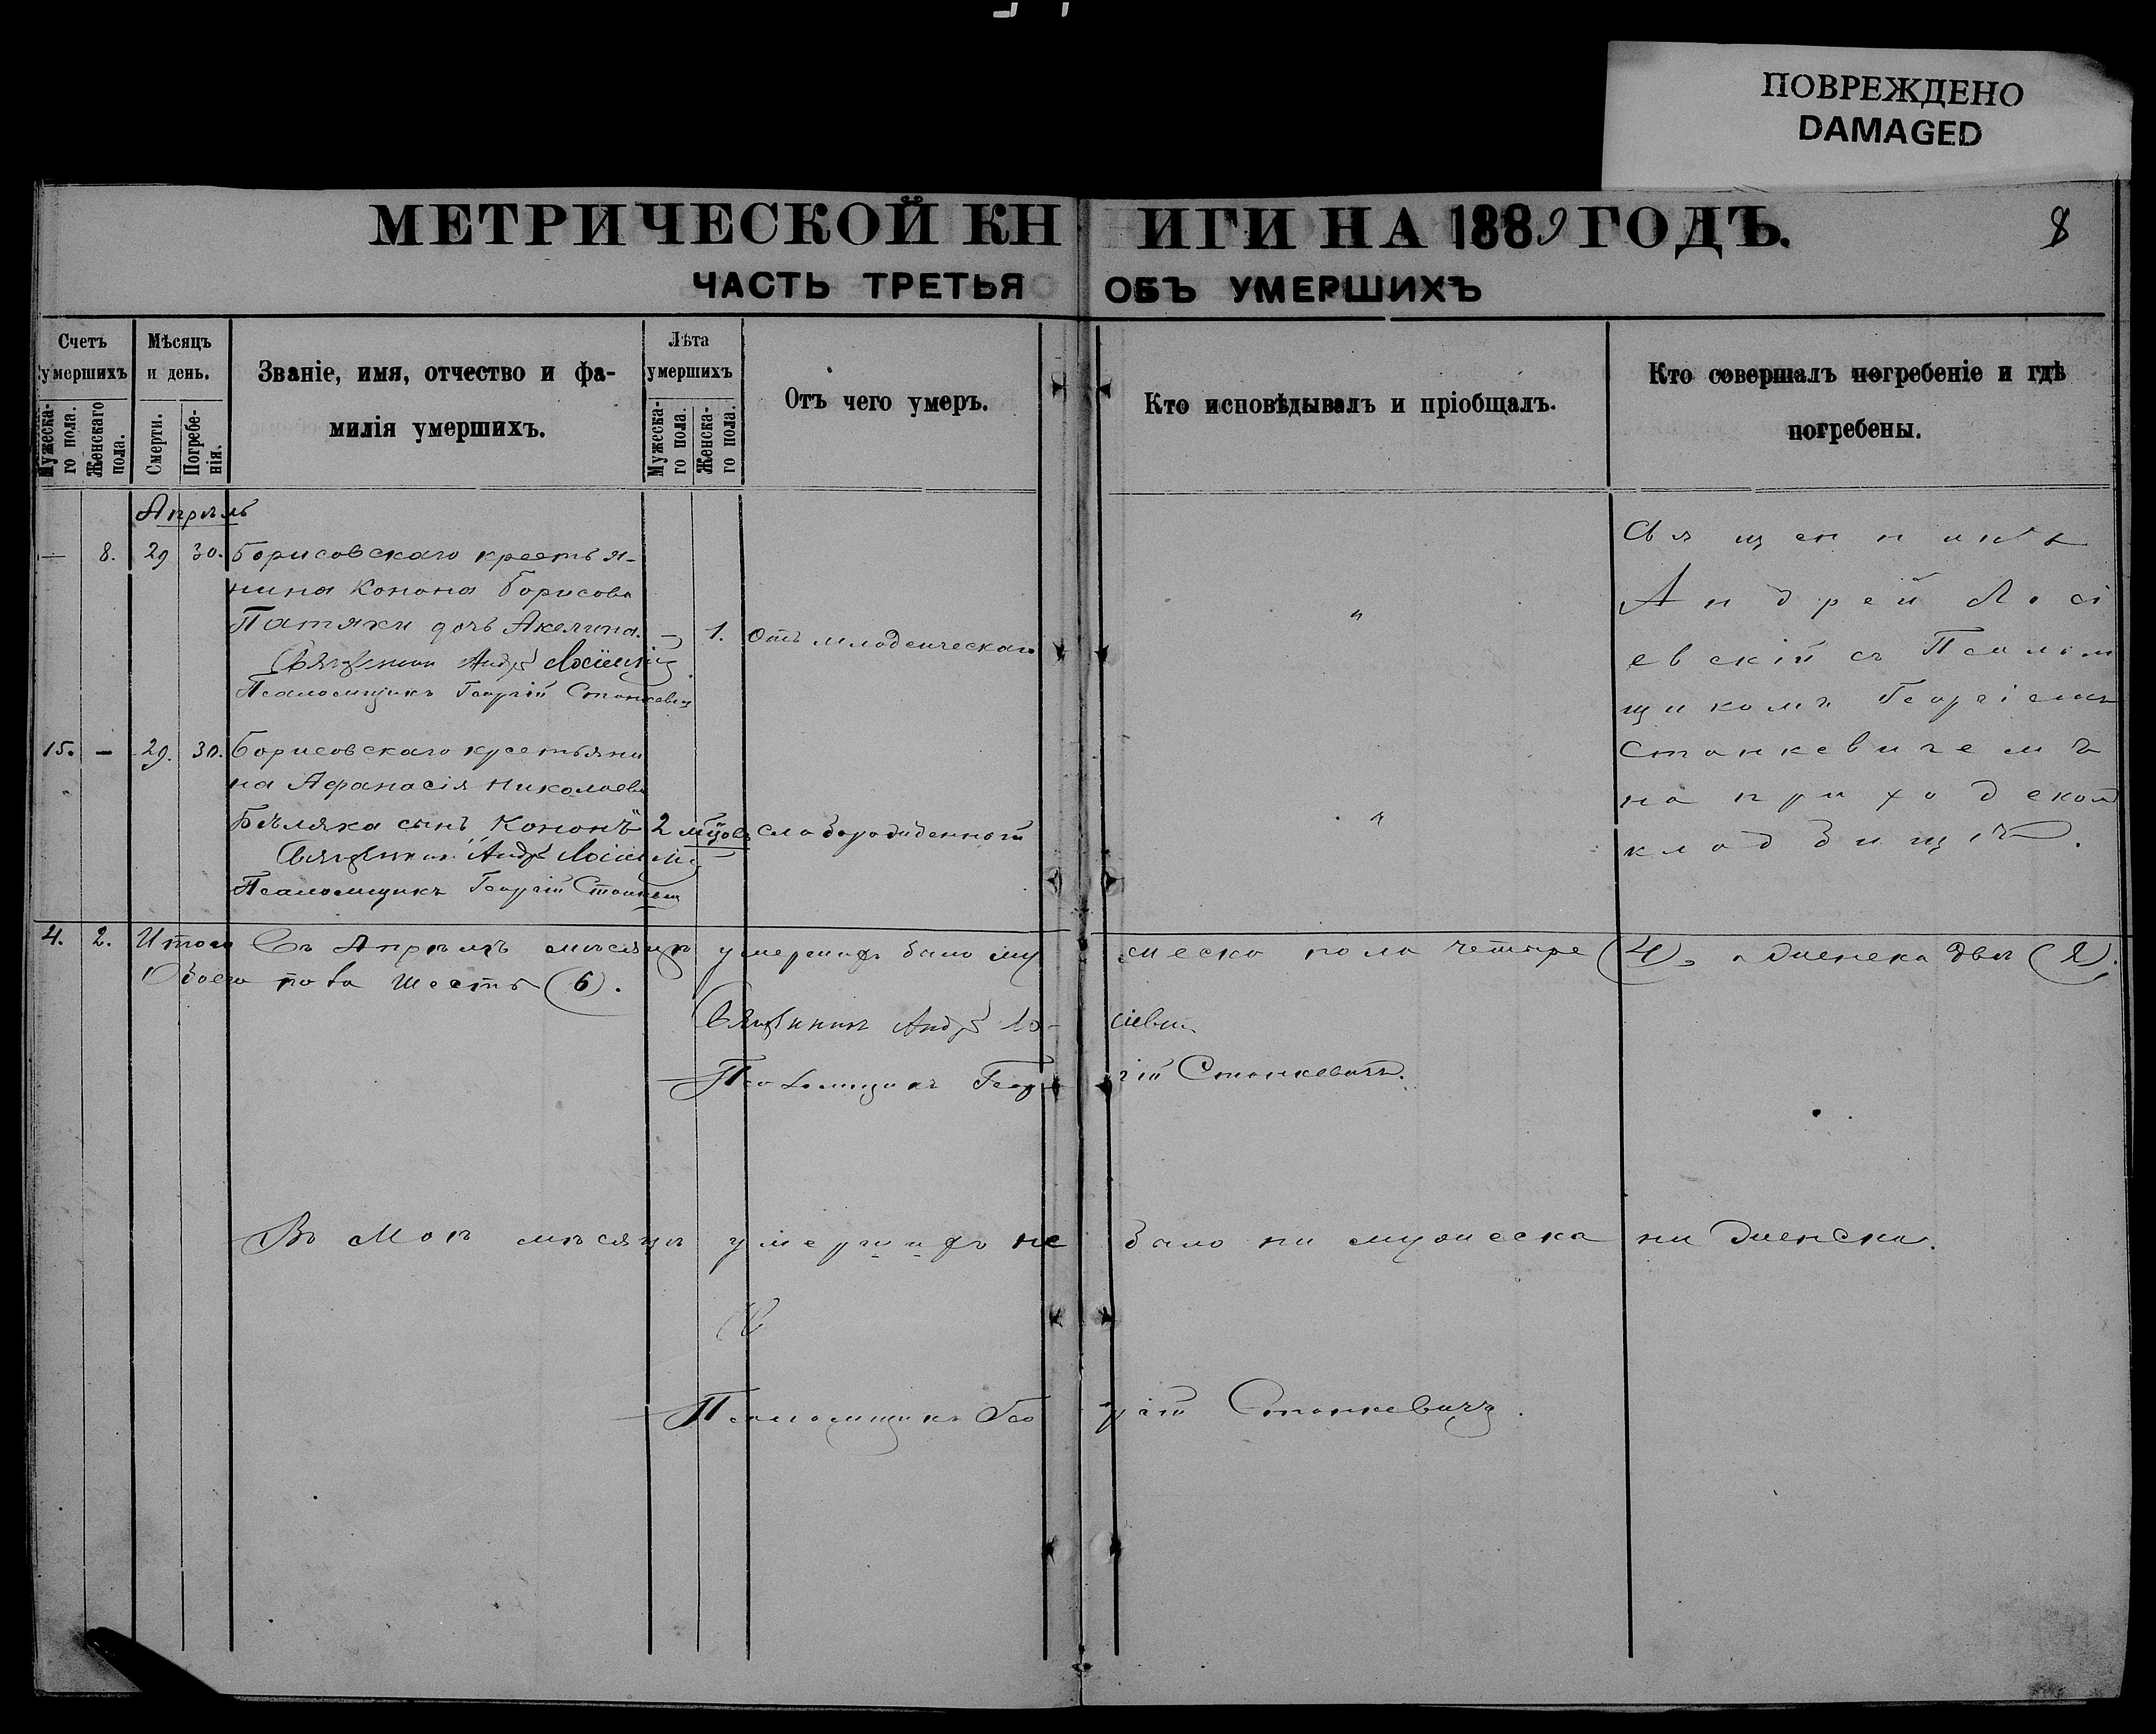 ПОВРЕЖДЕНО
DAMAGED
МЕТРИЧЕСКОЙ КНИГИ НА 1889 ГОДЪ.
8
ЧАСТЬ ТРЕТЬЯ ОБЪ УМЕРШИХЪ
Счетъ умершихъ
Мужеска-го пола.
Женскаго пола.
Мѣсяцъ и день.
Смерти.
Погребе-нія.
Званіе, имя, отчество и фа-
милія умершихъ.
Лѣта умершихъ
Мужеска-го пола.
Женска-го пола.
Отъ чего умеръ.
Кто исповѣдывалъ и пріобщалъ.
Кто совершалъ погребеніе и гдѣ
погребены.
Апрѣль
— 8. 29 30. Борисовскаго крестья-
нина Конона Борисова
Патяки дочь Акелина. — 1. Отъ младенческаго "
Священникъ Андрей Лосіевскій
Псаломщикъ Георгій Станкевич
15. — 29. 30. Борисовскаго крестьяни
на Афанасія Николаева
Бѣляка сынъ Кононъ 2 мѣс. слаборожденный "
Священникъ Андрей Лосіевскій
Псаломщикъ Георгій Станкевич
Священникъ
Андрей Лосі
евскій съ Псалом
щикомъ Георгіемъ
Станкевичемъ
на приходскомъ
кладбищѣ.
4. 2. Итого Въ Апрѣлѣ мѣсяцѣ умершихъ было мужеска пола четыре (4), а женска двѣ (2),
Обоего пола шесть (6).
Священникъ Андрей Лосіевскій
Псаломщикъ Георгій Станкевичъ.
Въ Маѣ мѣсяцѣ умершихъ не было ни мужеска ни женска.
Псаломщикъ Георгій Станкевичъ.